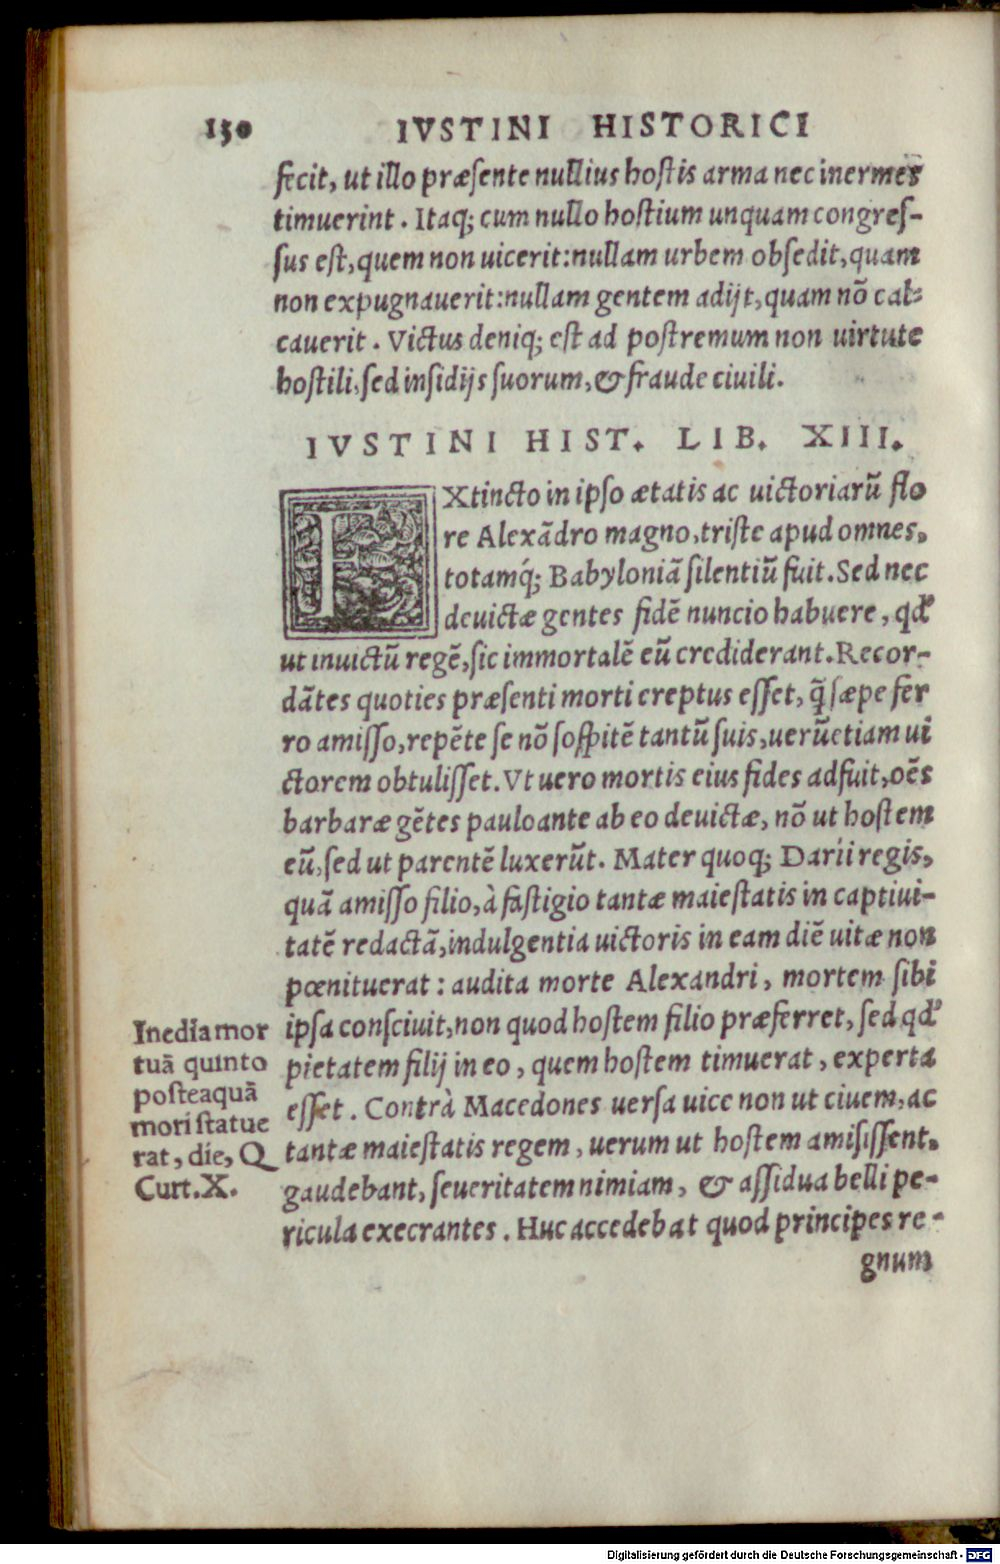 150 IVSTINI HISTORICI
fecit, ut illo præsente nullius hostis arma nec inermes
timuerint. Itaq; cum nullo hostium unquam congres-
sus est, quem non uicerit: nullam urbem obsedit, quam
non expugnauerit: nullam gentem adijt, quam nō cal-
cauerit. Victus deniq; est ad postremum non uirtute
hostili, sed insidijs suorum, & fraude ciuili.
IVSTINI HIST. LIB. XIII.
EXtincto in ipso ætatis ac uictoriarū flo
re Alexādro magno, triste apud omnes,
totamq́; Babyloniā silentiū fuit. Sed nec
deuictæ gentes fidē nuncio habuere, qđ
ut inuictū regē, sic immortalē eū crediderant. Recor-
dātes quoties præsenti morti ereptus esset, q̄ sæpe fer
ro amisso, repēte se nō sospitē tantū suis, uerūetiam ui
ctorem obtulisset. Vt uero mortis eius fides adfuit, oēs
barbaræ gētes pauloante ab eo deuictæ, nō ut hostem
eū, sed ut parentē luxerūt. Mater quoq; Darii regis,
quā amisso filio, à fastigio tantæ maiestatis in captiui-
tatē redactā, indulgentia uictoris in eam diē uitæ non
pœnituerat: audita morte Alexandri, mortem sibi
ipsa consciuit, non quod hostem filio præferret, sed qđ
pietatem filij in eo, quem hostem timuerat, experta
esset. Contrà Macedones uersa uice non ut ciuem, ac
tantæ maiestatis regem, uerum ut hostem amisissent,
gaudebant, seueritatem nimiam, & assidua belli pe-
ricula execrantes. Huc accedebat quod principes re-
gnum
Inedia mor
tuā quinto
posteaquā
mori statue
rat, die, Q
Curt. X.
Digitalisierung gefördert durch die Deutsche Forschungsgemeinschaft - DFG